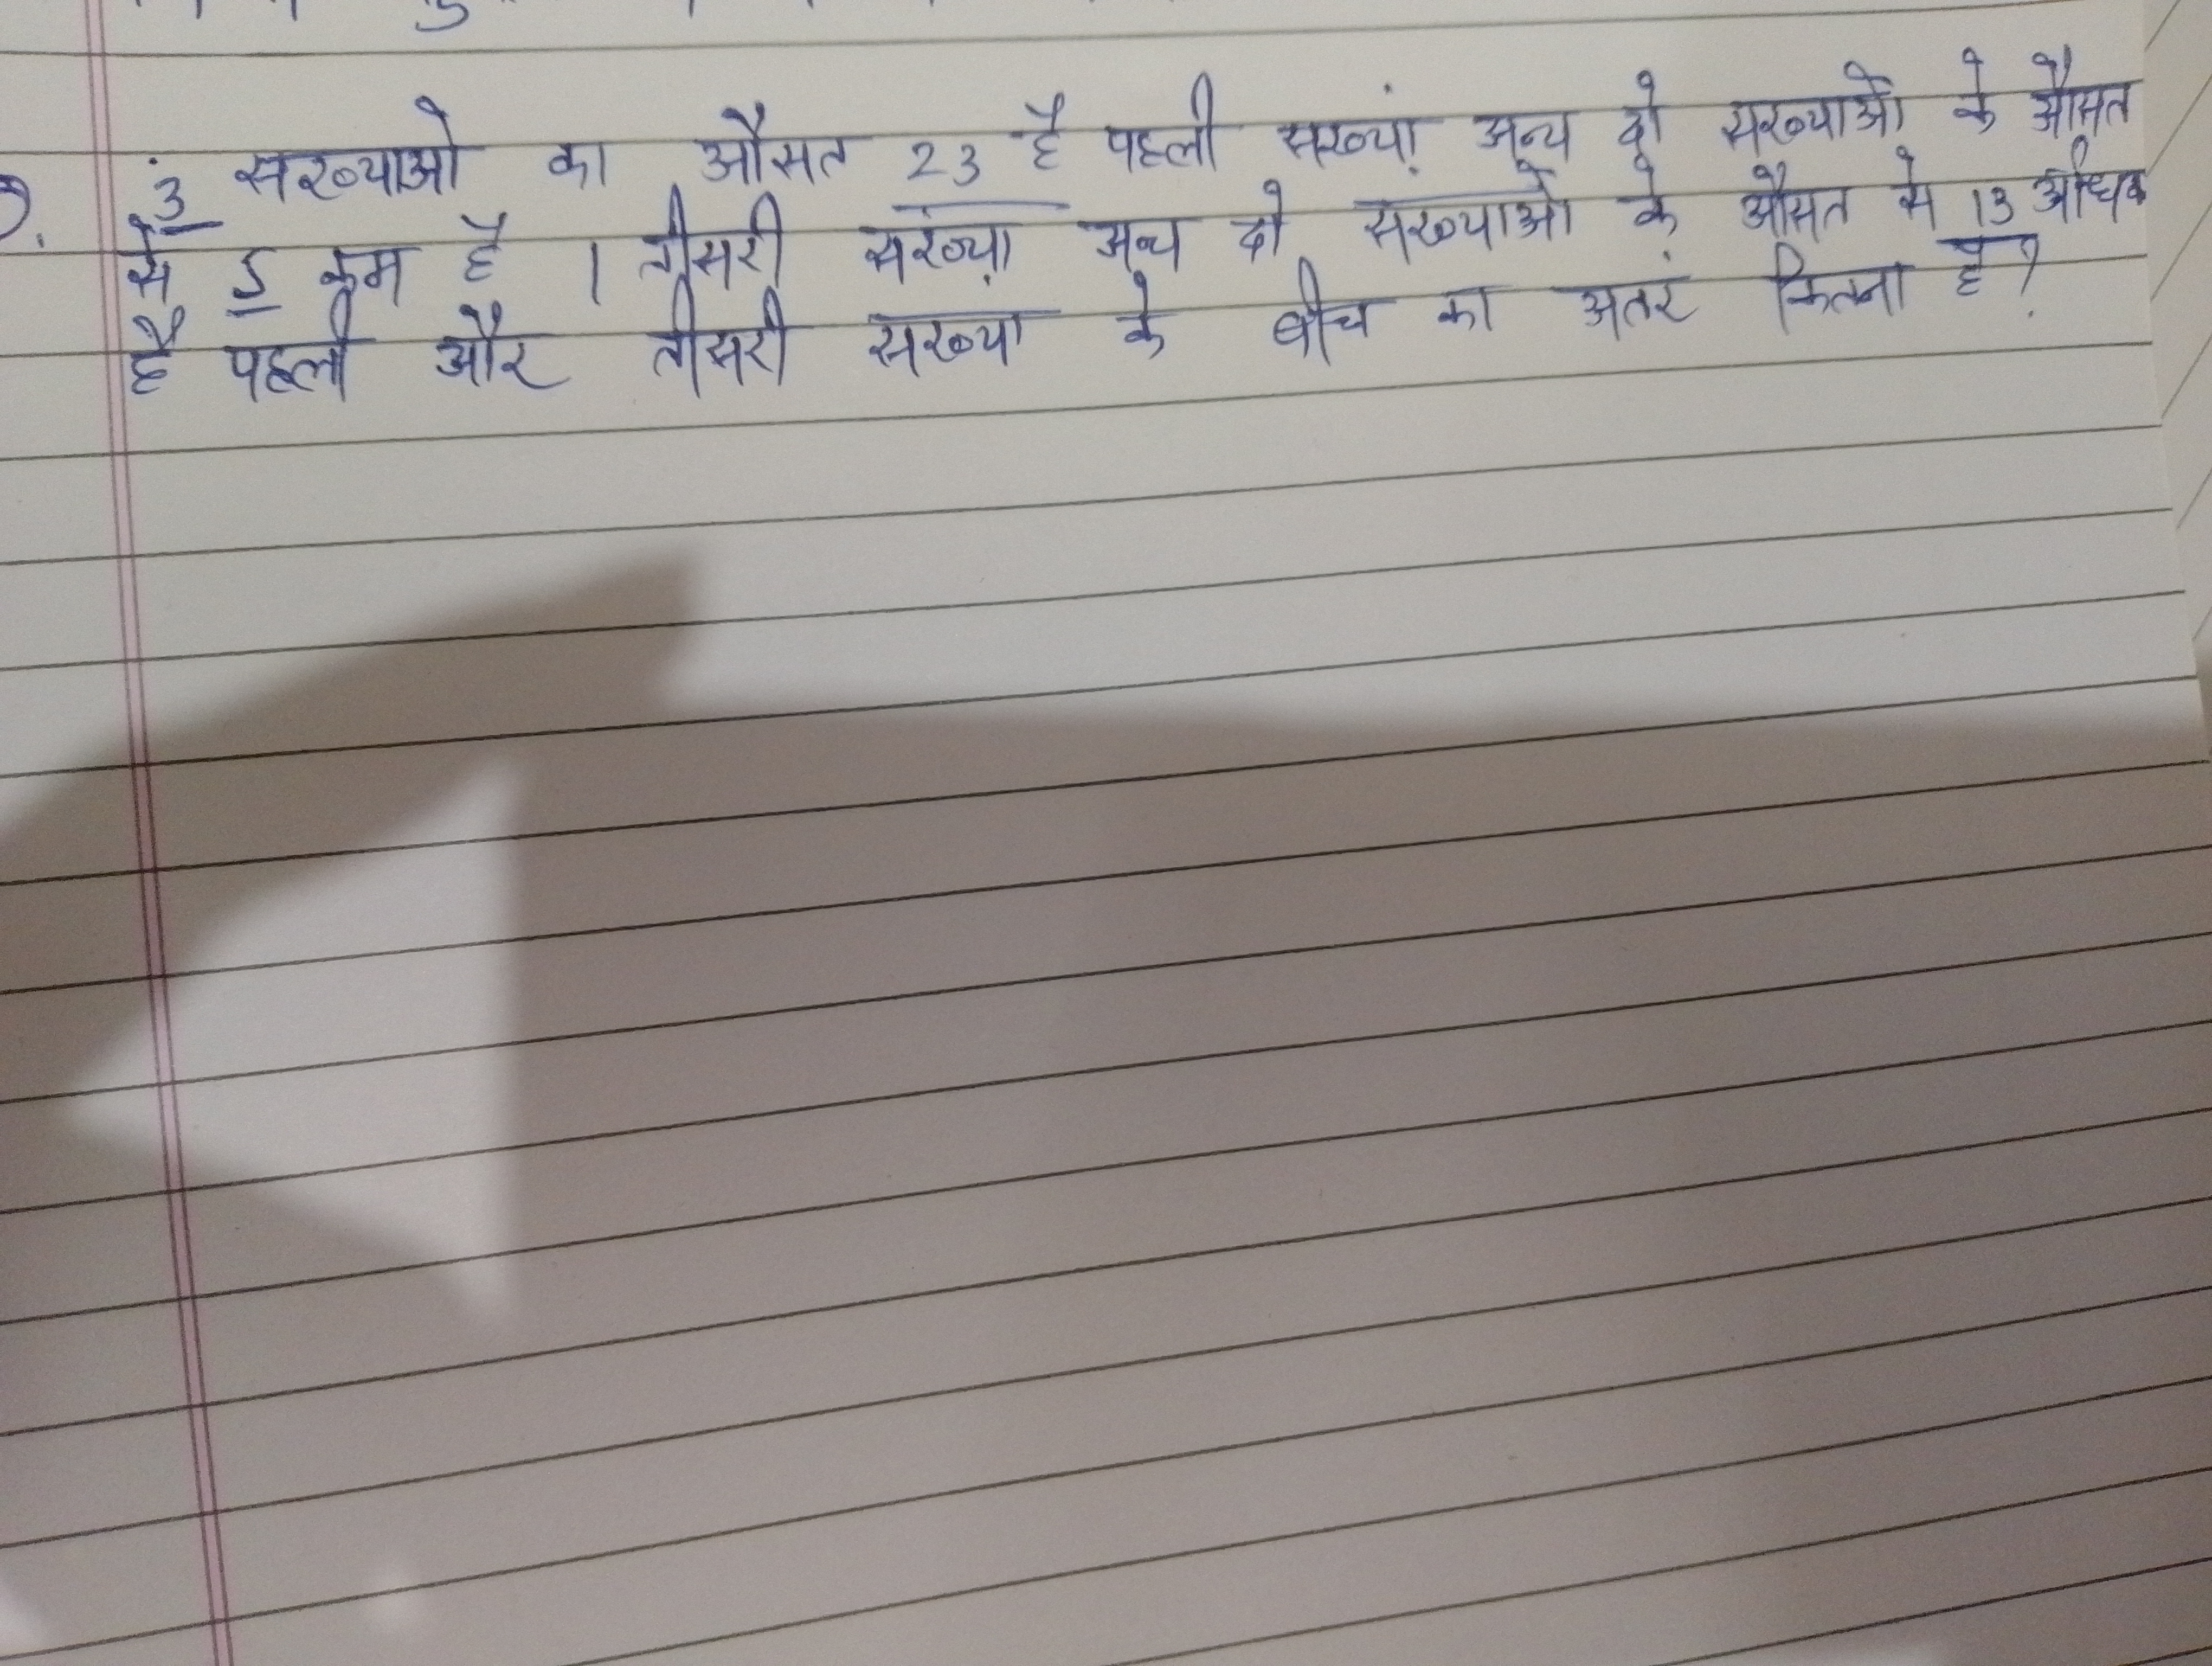 3 संख्याओ का औसत 23 है पहली संख्या अन्य दो संख्याओं के औसत
से 5 कम है । तीसरी संख्या अन्य दो संख्याओ के औसत से 13 अधिक
है पहली और तीसरी संख्या के बीच का अतरं कितना है ?